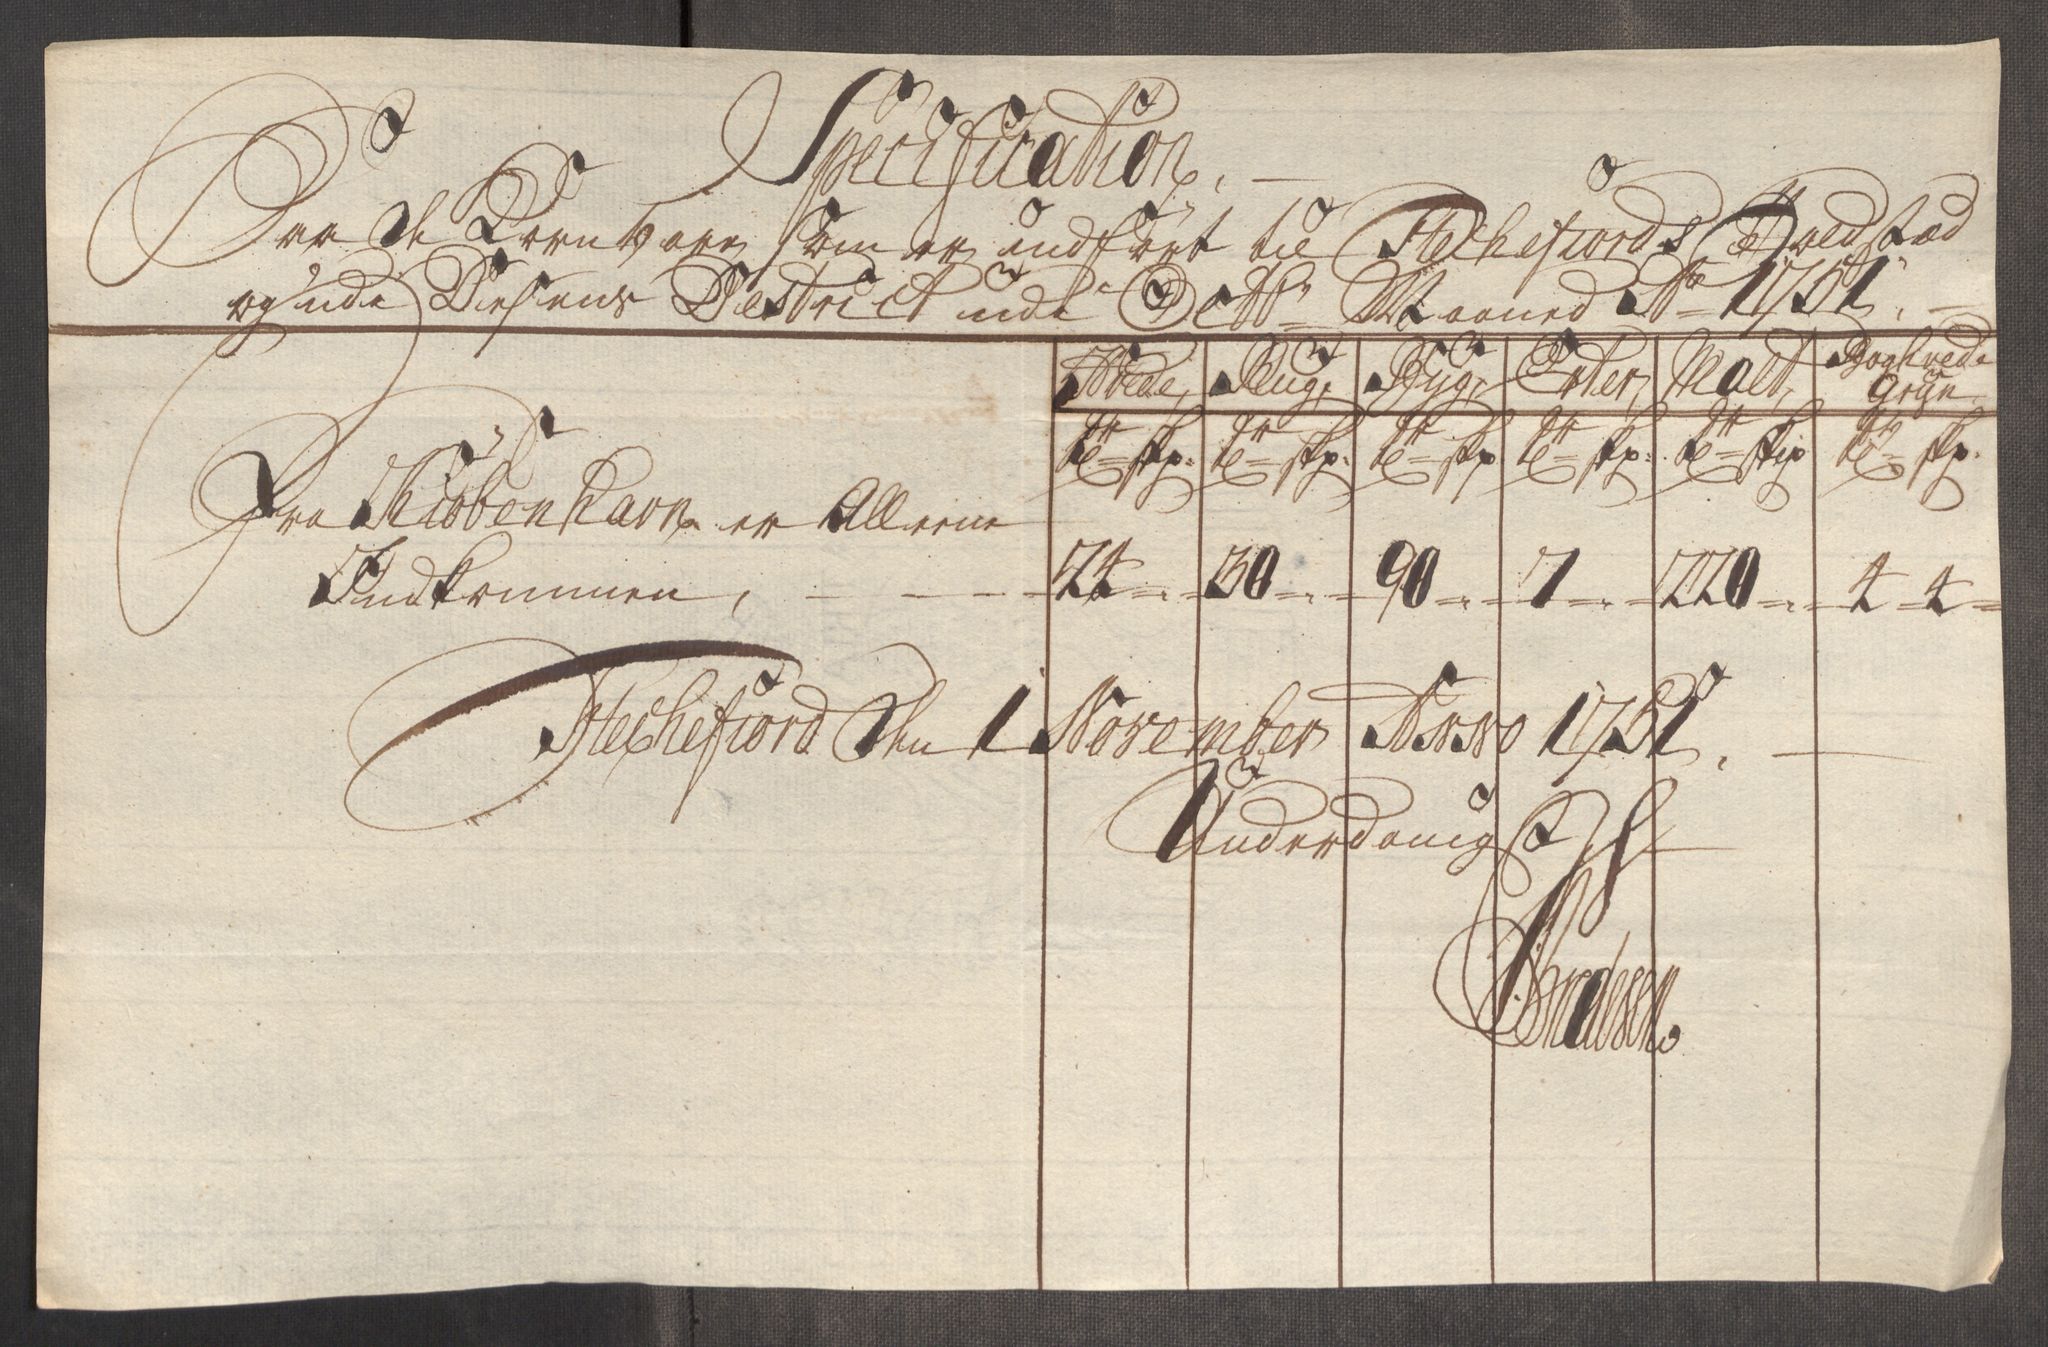 Specification,
Paa de Korn Vare, som er indført til Flechefiords Toldstæd
og inde Desens District udi Octbr Maaned Ao 1751.
Hvede, Rug, Byg, Erter, Malt, Boghvede Gryn
tr te skp: tr te skp: tr te skp tr te skp: tr te skip tr te skp.
Fra Kiöbenhavn er Alleene
Indkommen, 24 30 90 7 220 4 4
Flechefiord den 1 November Anno 1751.
Underdanigst